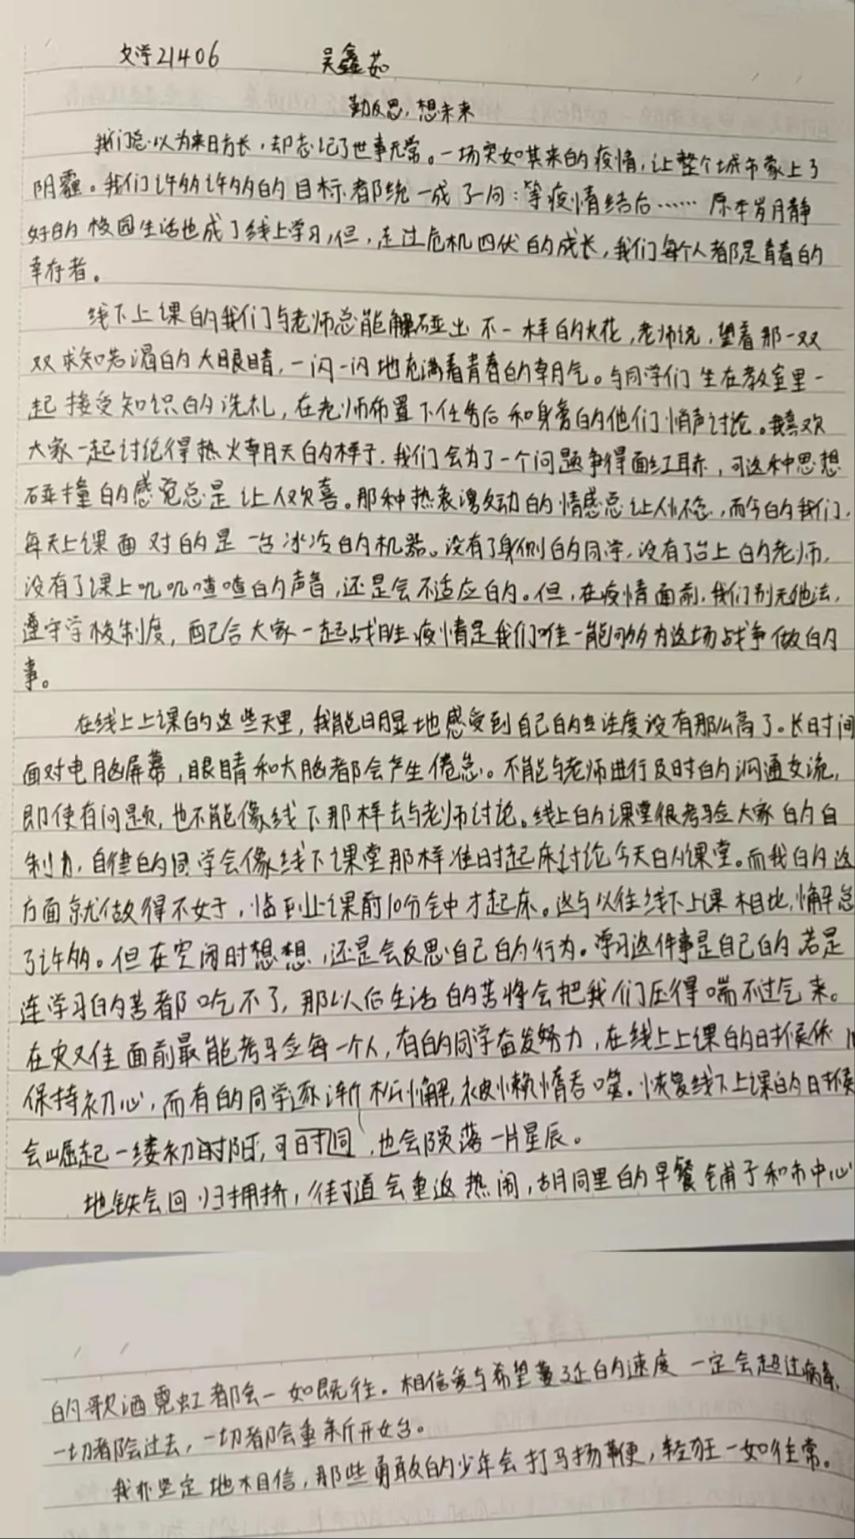 文学21406 吴鑫茹
勤反思,想未来
我们总以为来日方长,却忘记了世事无常。一场突如其来的疫情,让整个城市蒙上了
阴霾。我们许多许多的目标都统一成了一句:等疫情结后…… 原本岁月静
好的校园生活也成了线上学习,但,走过危机四伏的成长,我们每个人都是青春的
幸存者。
线下上课的我们与老师总能触碰出不一样的火花,老师说,望着那一双
双求知若渴的大眼睛,一闪一闪地充满着青春的朝气。与同学们坐在教室里一
起接受知识的洗礼,在老师布置下任务后和身旁的他们悄声讨论。我喜欢
大家一起讨论得热火朝天的样子,我们会为了一个问题争得面红耳赤,可这种思想
碰撞的感觉总是让人欢喜。那种热衷澎动的情感总让人怀念,而今的我们,
每天上课面对的是一台冰冷的机器。没有了身侧的同学,没有了台上的老师,
没有了课上叽叽喳喳的声音,还是会不适应的。但,在疫情面前,我们别无他法,
遵守学校制度,配合大家一起战胜疫情是我们唯一能够为这场战争做的
事。
在线上上课的这些天里,我能明显地感受到自己的专注度没有那么高了。长时间
面对电脑屏幕,眼睛和大脑都会产生倦怠。不能与老师进行及时的沟通交流,
即使有问题,也不能像线下那样去与老师讨论。线上的课堂很考验大家的自
制力,自律的同学会像线下课堂那样准时起床讨论今天的课堂。而我的这
方面就做得不好,临到上课前10分钟才起床。这与以往线下上课相比,懈怠
了许多。但在空闲时想想,还是会反思自己的行为。学习这件事是自己的,若是
连学习的苦都吃不了,那以后生活的苦将会把我们压得喘不过气来。
在灾难面前最能考验每一个人,有的同学奋发努力,在线上上课的时候依旧
保持初心,而有的同学逐渐松懈,被懒惰吞噬。恢复线下上课的时候
会崛起一缕初阳,可同时,也会陨落一片星辰。
地铁会回归拥挤,街道会重返热闹,胡同里的早餐铺子和市中心
的歌酒霓虹都会一如既往。相信爱与希望蔓延的速度一定会超过病毒,
一切都会过去,一切都会重新开始。
我亦坚定地相信,那些勇敢的少年会打马扬鞭,轻狂一如往常。